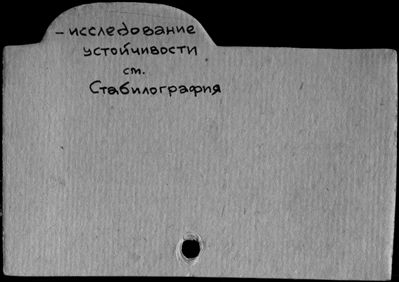 – исследование
устойчивости
см.
Стабилография